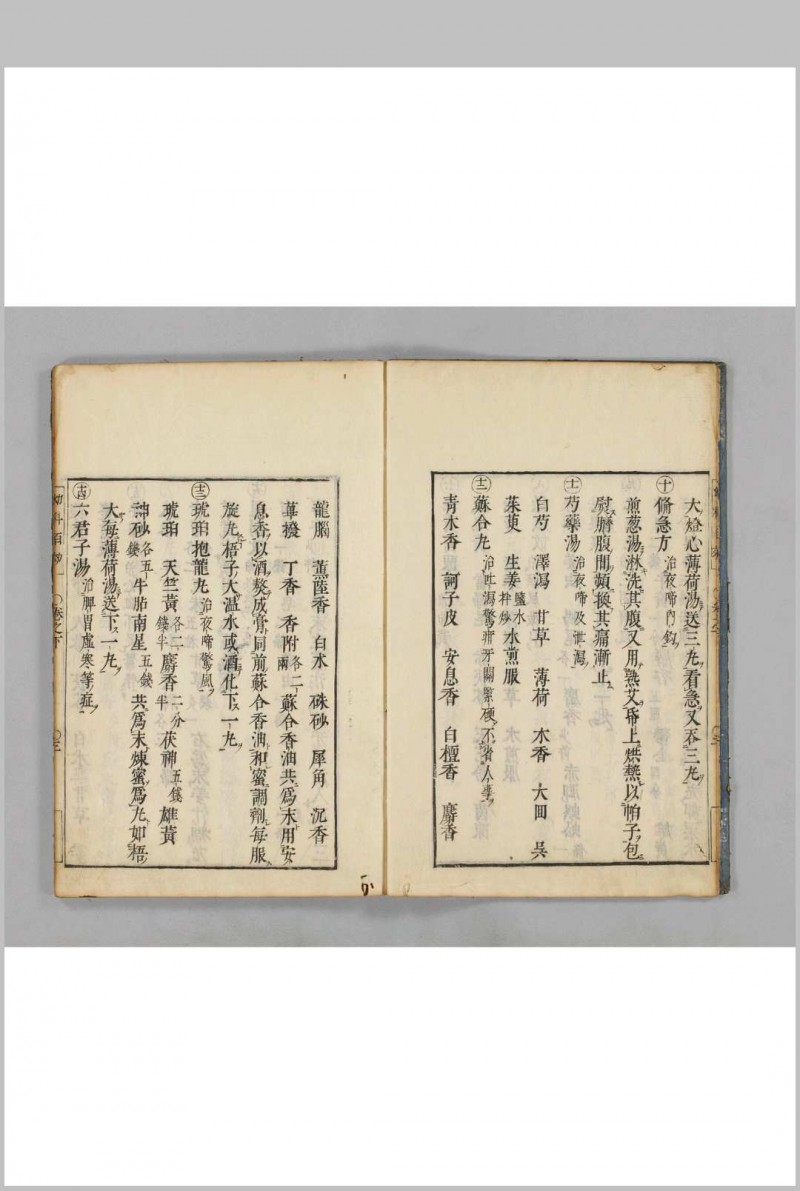 大燈心薄荷湯送三丸看急又吞三丸
㊉偹急方 治夜啼門釣
煎葱湯淋洗其腹又用熟艾帋上烘𤍠以帕子包
熨臍腹間頻換其痛漸止
十一 芍藥湯 治夜啼及泄瀉
白芍 澤瀉 甘草 薄荷 木香 大田 吳
茱萸 生姜 鹽水拌炒 水煎服
十二 蘇合丸 治吐瀉驚疳牙關緊硬不省人事
青木香 訶子皮 安息香 白檀香 麝香
龍腦 薰陸香 白朮 硃砂 犀角 沉香
蓽撥 丁香 香附 各二兩 蘇合香油共爲末用安
息香以酒熬成膏同前蘇合香油和蜜調劑每服
旋丸梧子大温水或酒化下一丸
十三 琥珀抱龍丸 治夜啼驚風
琥珀 天竺黃 各二錢半 麝香 二分半 茯神 五錢 雄黃
硃砂 各五錢 牛胆南星 五錢 共爲末煉蜜爲丸如梧
大每薄荷湯送下一丸
十四 六君子湯 治脾胃虛寒等症
幼科百 卷之下 三